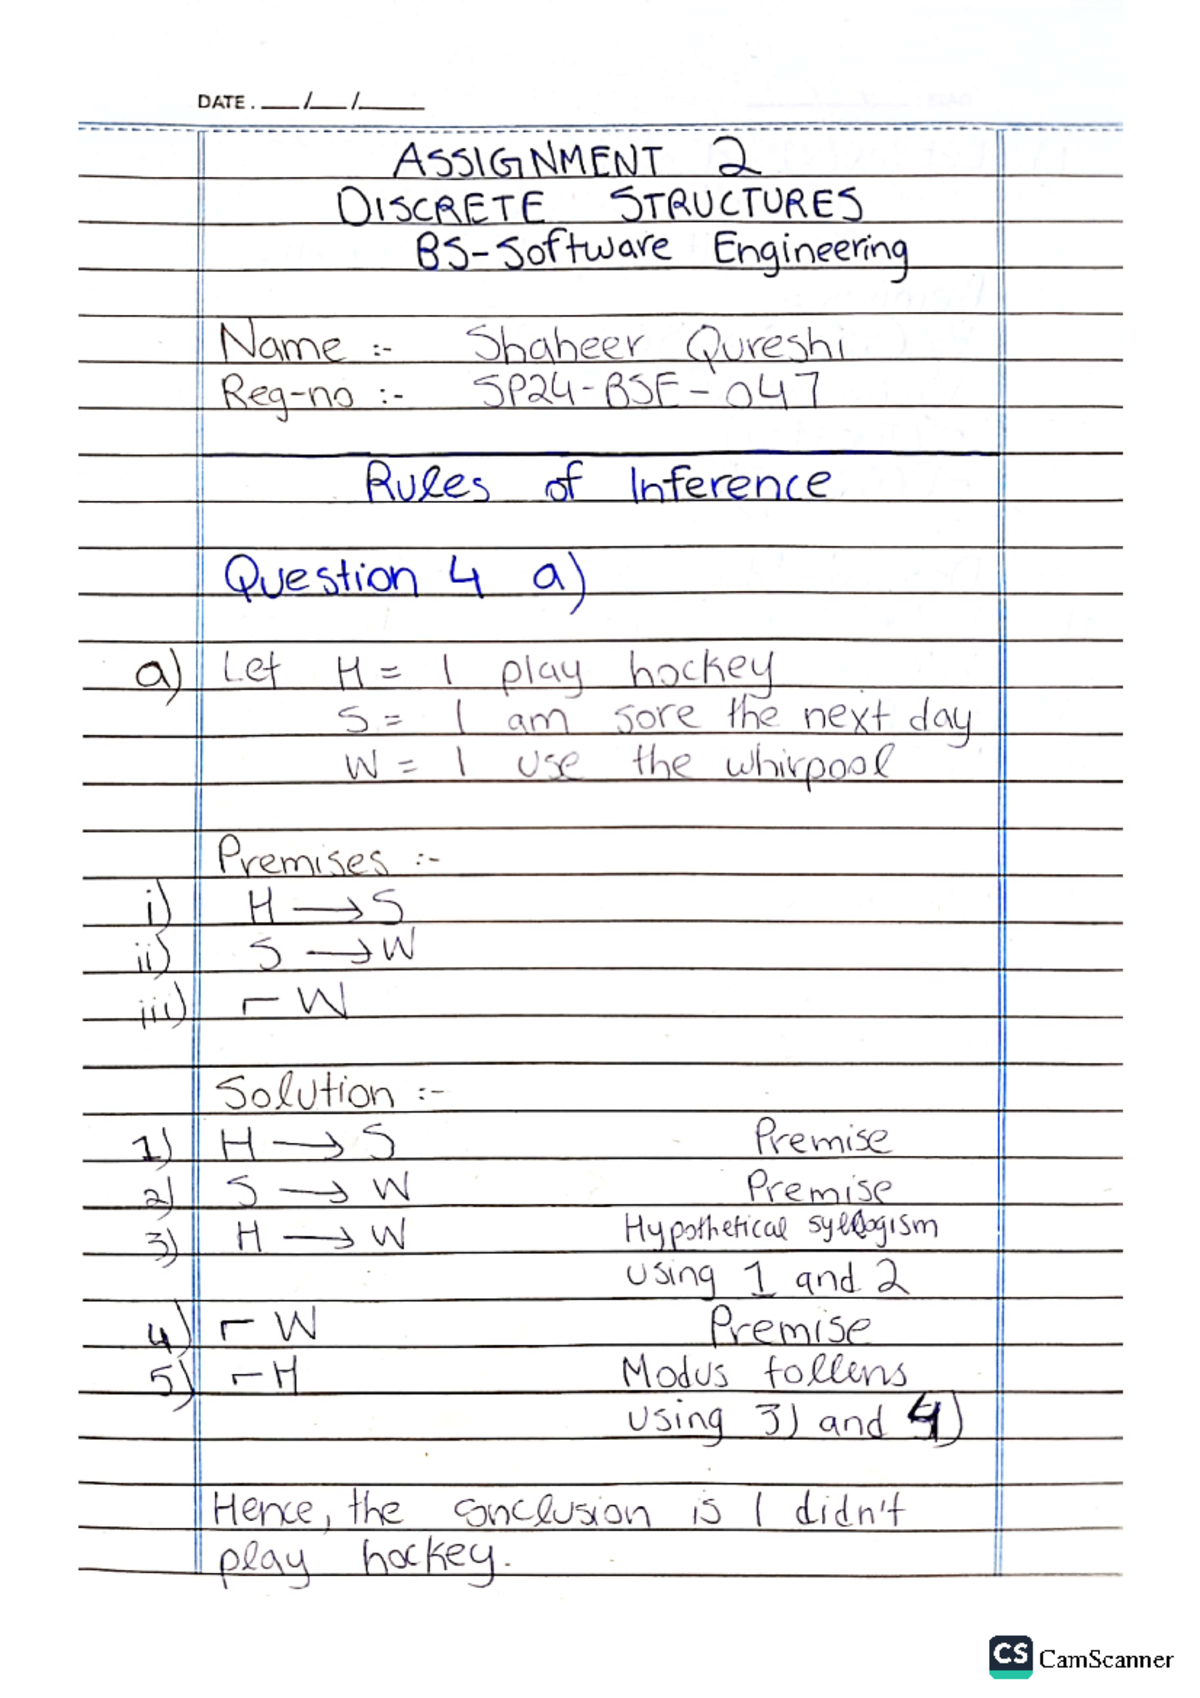 DATE. ___/___/_____
ASSIGNMENT 2
DISCRETE STRUCTURES
BS-Software Engineering
Name :- Shaheer Qureshi
Reg-no :- SP24-BSE-047
Rules of Inference
Question 4 a)
a) Let H = I play hockey
S = I am sore the next day
W = I use the whirpool
Premises :-
i) H → S
ii) S → W
iii) ¬ W
Solution :-
1) H → S Premise
2) S → W Premise
3) H → W Hypothetical syllogism
using 1 and 2
4) ¬ W Premise
5) ¬ H Modus tollens
using 3) and 4)
Hence, the conclusion is I didn't
play hockey.
CS CamScanner